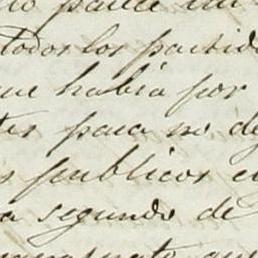 todos los partid
que habia por
tes para no de
s publicos e
a segundo de